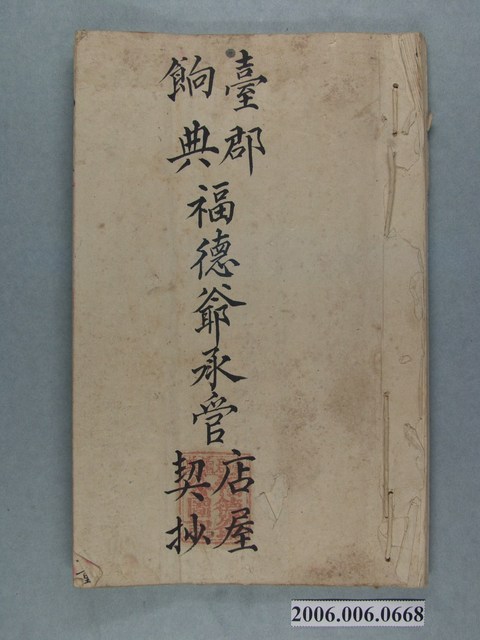 臺郡
餉典
福德爺承管
店屋
契抄
2006.006.0668